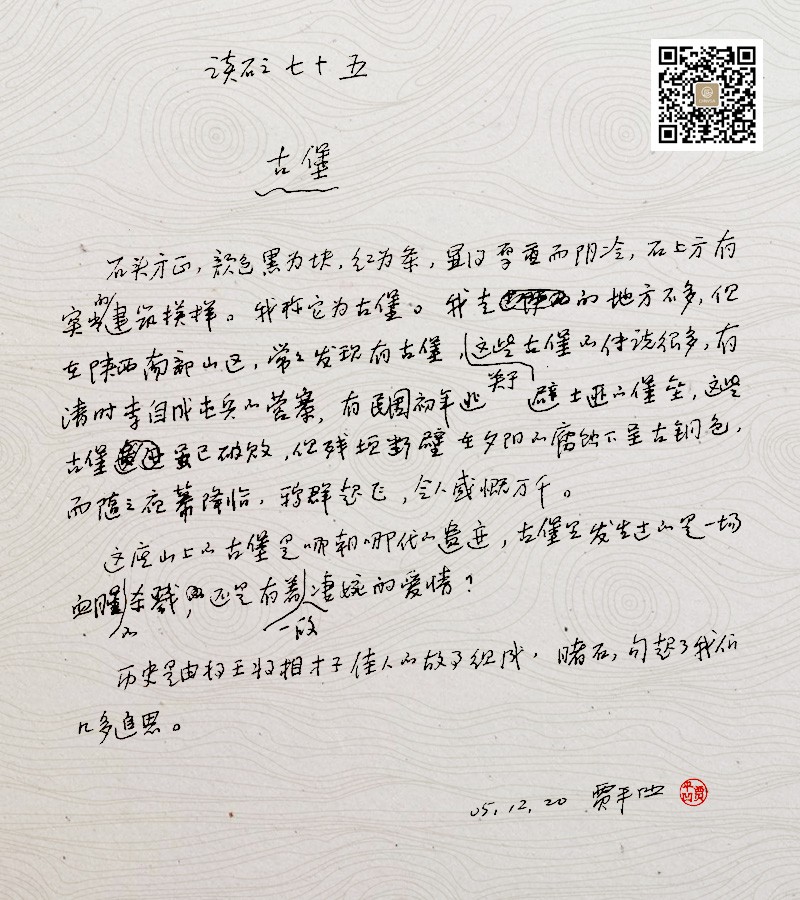 读石之七十五
古堡
石头方正，颜色黑为块，红为条，显得厚重而阴冷，石上方有
突出的建筑模样。我称它为古堡。我走的地方不多，但
在陕西南部山区，常常发现有古堡，关于这些古堡的传说很多，有
清时李自成屯兵的营寨，有民国初年逃避土匪的堡垒，这些
古堡虽已破败，但残垣断壁在夕阳的腐蚀下呈古铜色，
而随之夜幕降临，鸦群起飞，令人感慨万千。
这座山上的古堡是哪朝哪代的遗迹，古堡里发生过的是一场
血腥的杀戮，还是有着一段凄婉的爱情？
历史是由帝王将相才子佳人的故事组成，睹石，勾起了我们
几多追思。
05.12.20 贾平凹
贾平凹